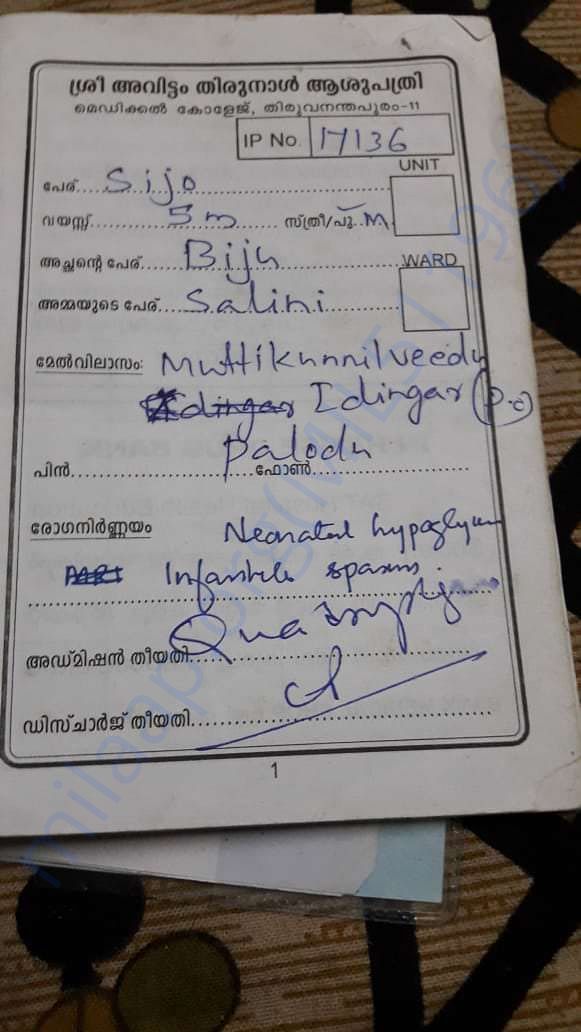 ശ്രീ അവിട്ടം തിരുനാൾ ആശുപത്രി
മെഡിക്കൽ കോളേജ്, തിരുവനന്തപുരം-11
IP No. 17136
UNIT
പേര്.... Sijo
വയസ്സ്.... 5m .... സ്ത്രീ/പു. M
അച്ഛന്റെ പേര്... Biju
WARD
അമ്മയുടെ പേര്.... Salini
മേൽവിലാസം: Muttikunnilveedu
Idingar Idingar (P.O)
Palodu
പിൻ.... ഫോൺ....
രോഗനിർണ്ണയം Neonatal
Infantile spasms.
അഡ്മിഷൻ തീയതി....
ഡിസ്ചാർജ് തീയതി....
1